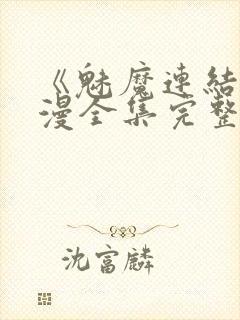 《魅魔連結
漫全集完整
沈富麟